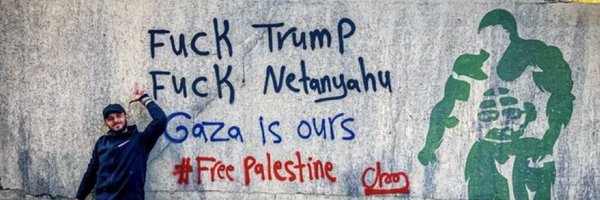 Fuck Trump
Fuck Netanyahu
Gaza is ours
#Free Palestine